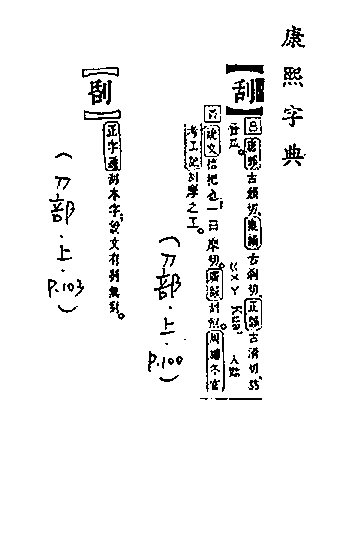 康熙字典
【刮】
唐韻古切集韻古刹切正韻古滑切𠀤
音 ㄍㄨㄚ Kua 入黠
說文掊把也一曰摩切。廣韻刮削。周禮冬官
考工記刮摩之工。
(刀部.上.P.100)
【𠜜】
正字通刮本字。說文有𠜜無刮。
(刀部.上.P.103)